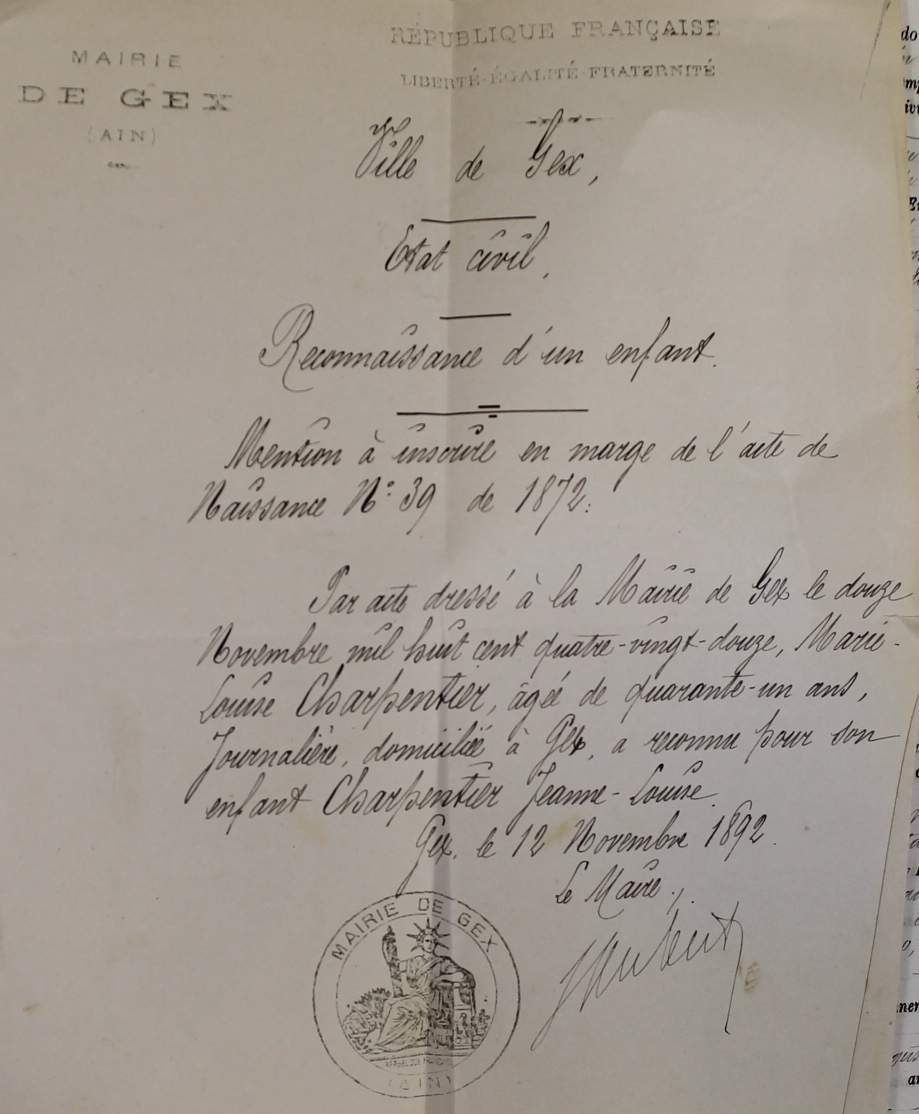 MAIRIE
DE GEX
(AIN)
RÉPUBLIQUE FRANÇAISE
LIBERTÉ-ÉGALITÉ-FRATERNITÉ
Ville de Gex,
Etat civil,
Reconnaissance d'un enfant.
Mention à inscrire en marge de l'acte de
Naissance N° 39 de 1872:
Par acte dressé à la Mairie de Gex le douze
Novembre mil huit cent quatre-vingt-douze, Marie-
Louise Charpentier, âgée de quarante-un ans,
Journalière, domiciliée à Gex, a reconnu pour son
enfant Charpentier Jeanne-Louise.
Gex, le 12 Novembre 1892.
Le Maire,
MAIRIE DE GEX
(AIN)